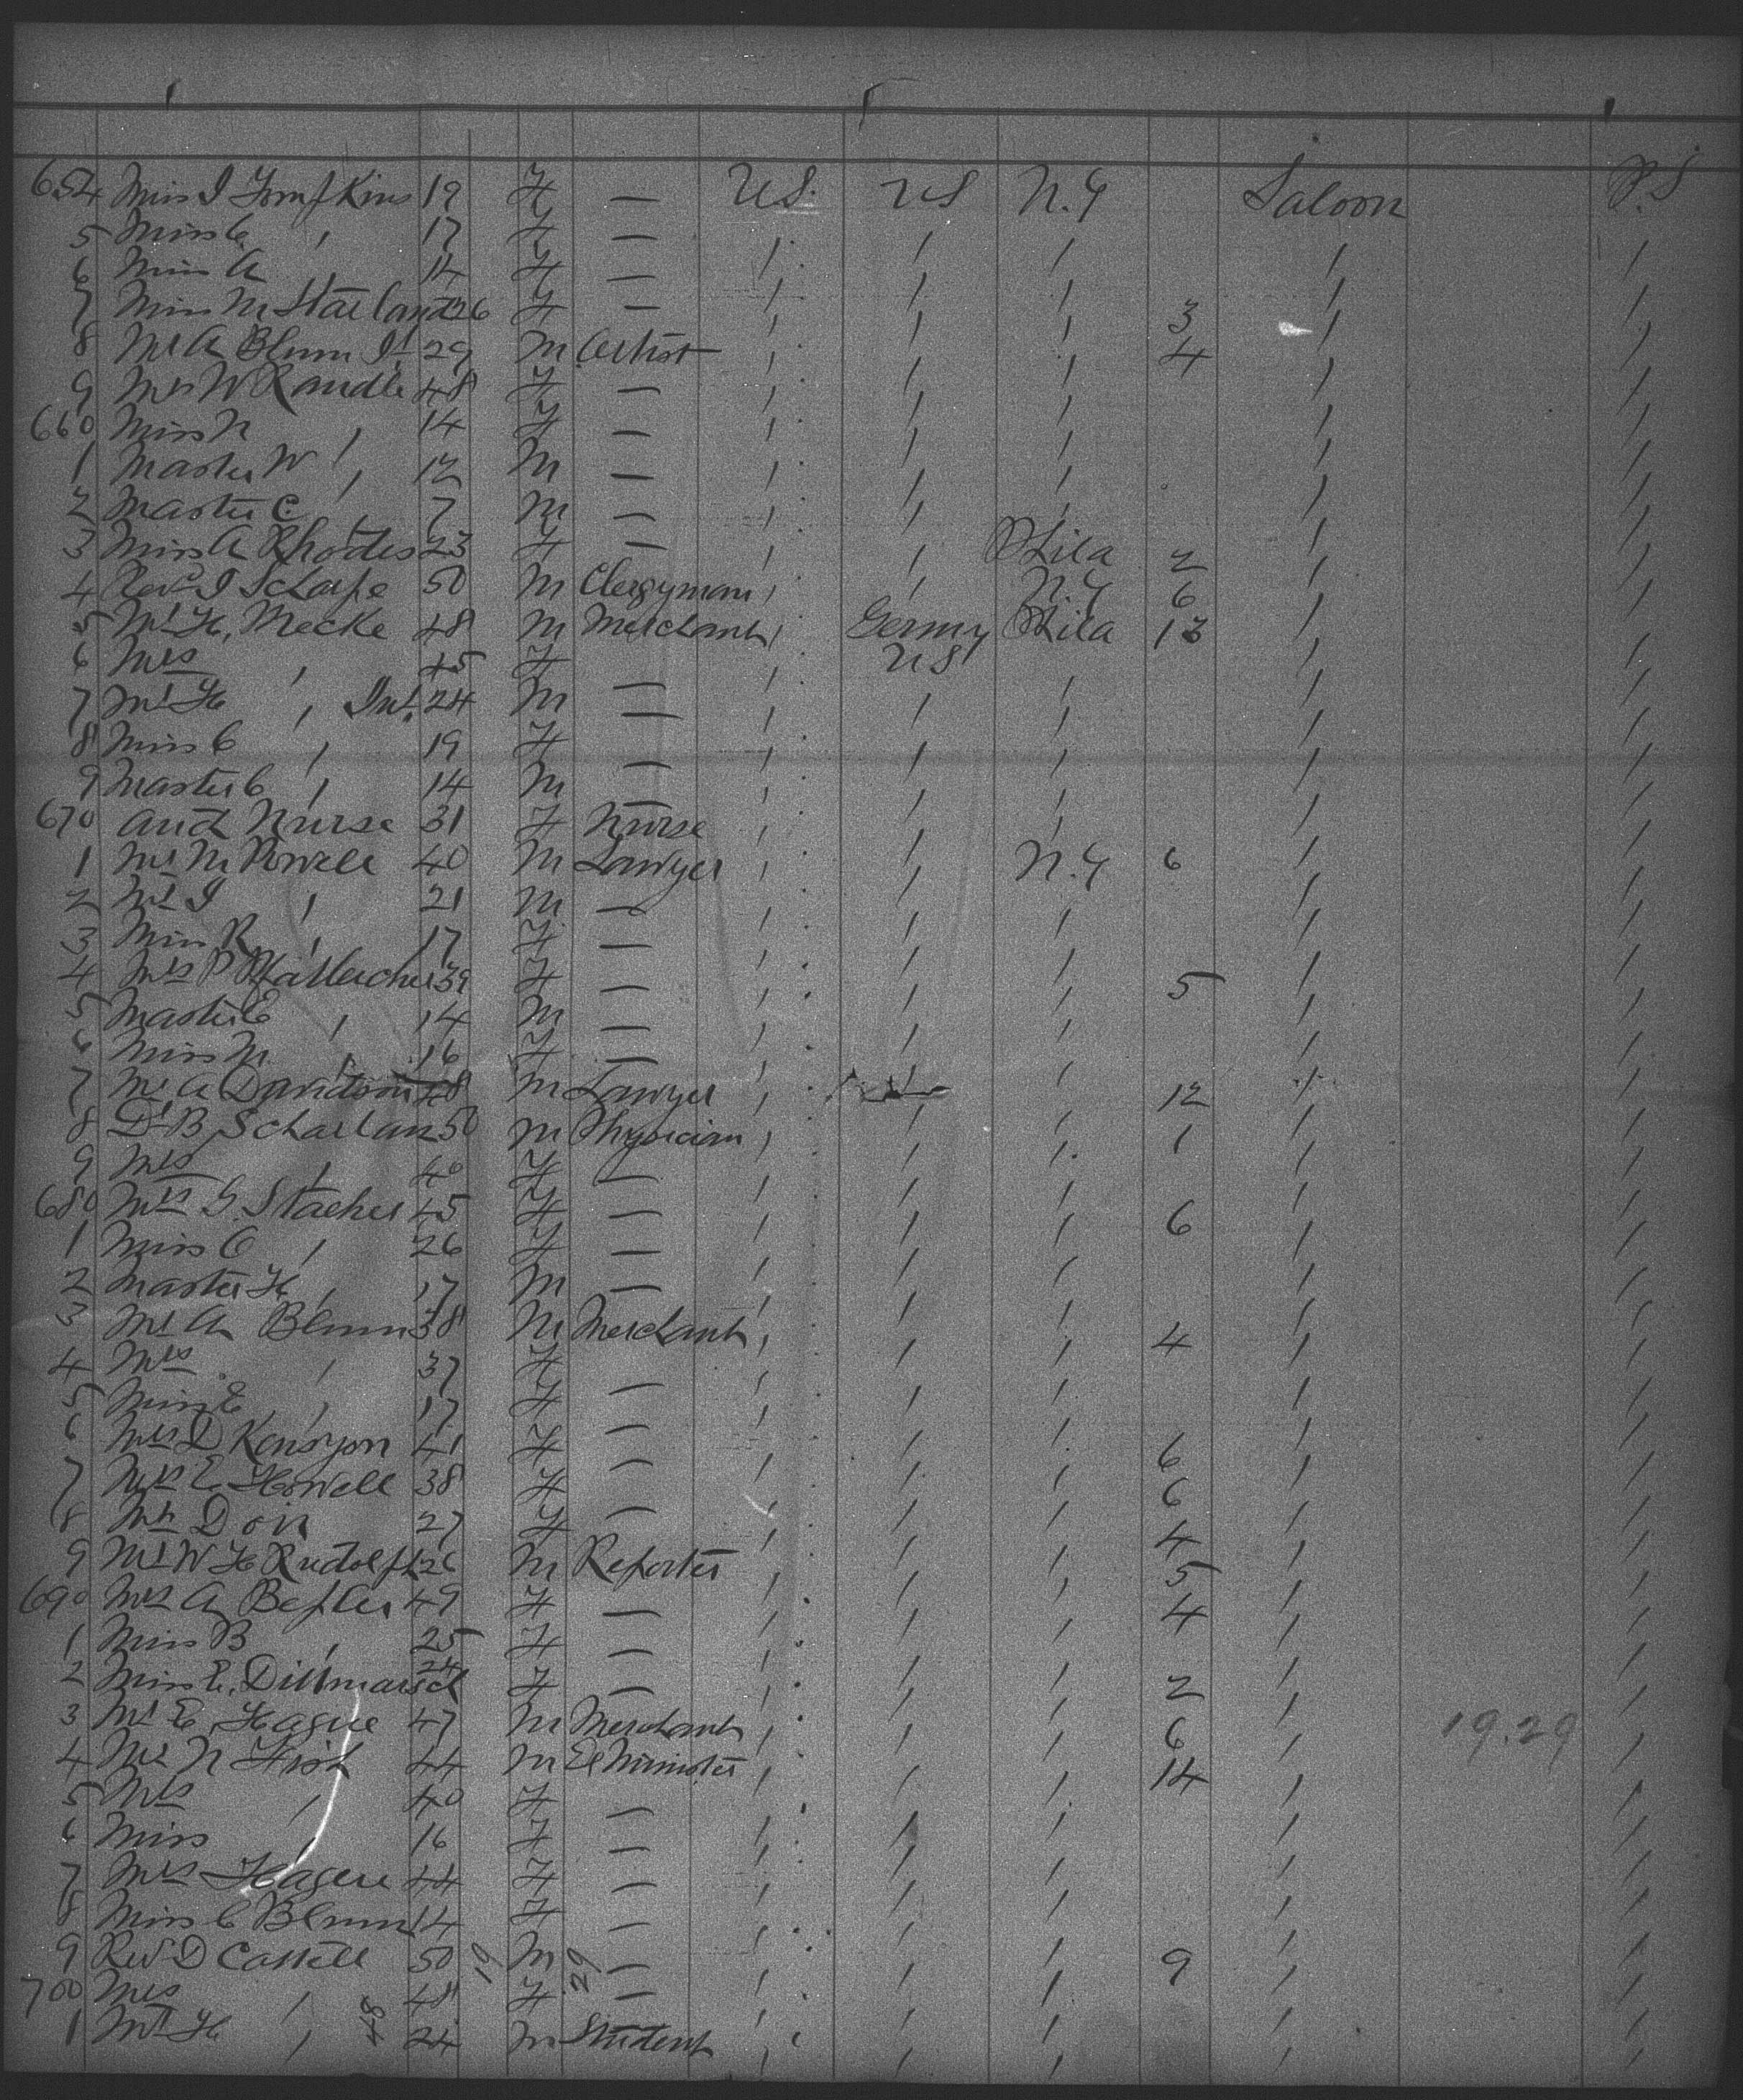 654 Miss I Tompkins 19 F — U.S. U S N.Y Saloon P.S
5 Miss C , 17 F — / / / / /
6 Miss A 14 F — / / / / /
7 Miss M 26 F — / / / 3 / /
8 Mr A Blum Jr 29 M Artist / / / 4 / /
9 Mrs W Randle 48 F — / / / / /
660 Miss N , 14 F — / / / / /
1 Master W , 12 M — / / / / /
2 Master C , 7 M — / / / / /
3 Miss A Rhodes 23 F — / / Phila 2 / /
4 Revd J Scharfe 50 M Clergyman / / N.Y 6 / /
5 Mr H. Mecke 48 M Merchant / Germy Phila 13 / /
6 Mrs , 45 F — / U S / / /
7 Mr H , Jnr. 24 M — / / / / /
8 Miss C , 19 F — / / / / /
9 Master C , 14 M — / / / / /
670 and Nurse 31 F Nurse / / / / /
1 Mr M Powell 40 M Lawyer / / N.Y 6 / /
2 Mr J , 21 M — / / / / /
3 Miss R , 17 F — / / / / /
4 Mrs P 39 F — / / / 5 / /
5 Master E , 14 M — / / / / /
6 Miss M , 16 F — / / / / /
7 Mr A Davidson 48 M Lawyer / / / 12 / /
8 Dr B Scharlau 50 M Physician / / / 1 / /
9 Mrs , 40 F — / / / / /
680 Mrs G Staeher 45 F — / / / 6 / /
1 Miss C , 26 F — / / / / /
2 Master H , 17 M — / / / / /
3 Mr A Blum 38 M Merchant / / / 4 / /
4 Mrs , 37 F — / / / / /
5 Miss E , 17 F — / / / / /
6 Mrs D Kensyon 41 F — / / / 6 / /
7 Mrs E Howell 38 F — / / / 6 / /
8 Mrs 27 F — / / / 4 / /
9 Mr W H Rudolph 26 M Reporter / / / 5 / /
690 Mrs A Befler 49 F — / / / 4 / /
1 Miss B , 25 F — / / / / /
2 Miss E. Dittmarsch 24 F — / / / 2 / /
3 Mr E Hague 47 M Merchant / / / 6 / 19.29 /
4 Mr N Fish 44 M Ex Minister / / / 14 / /
5 Mrs , 40 F — / / / / /
6 Miss , 16 F — / / / / /
7 Mrs Hague 44 F — / / / / /
8 Miss C Blum 14 F — / / / / /
9 Rev D Cattell 50 19 M 29 — / / / 9 / /
700 Mrs , 48 F — / / / / /
1 Mr H , 48 24 M Student / / / / /